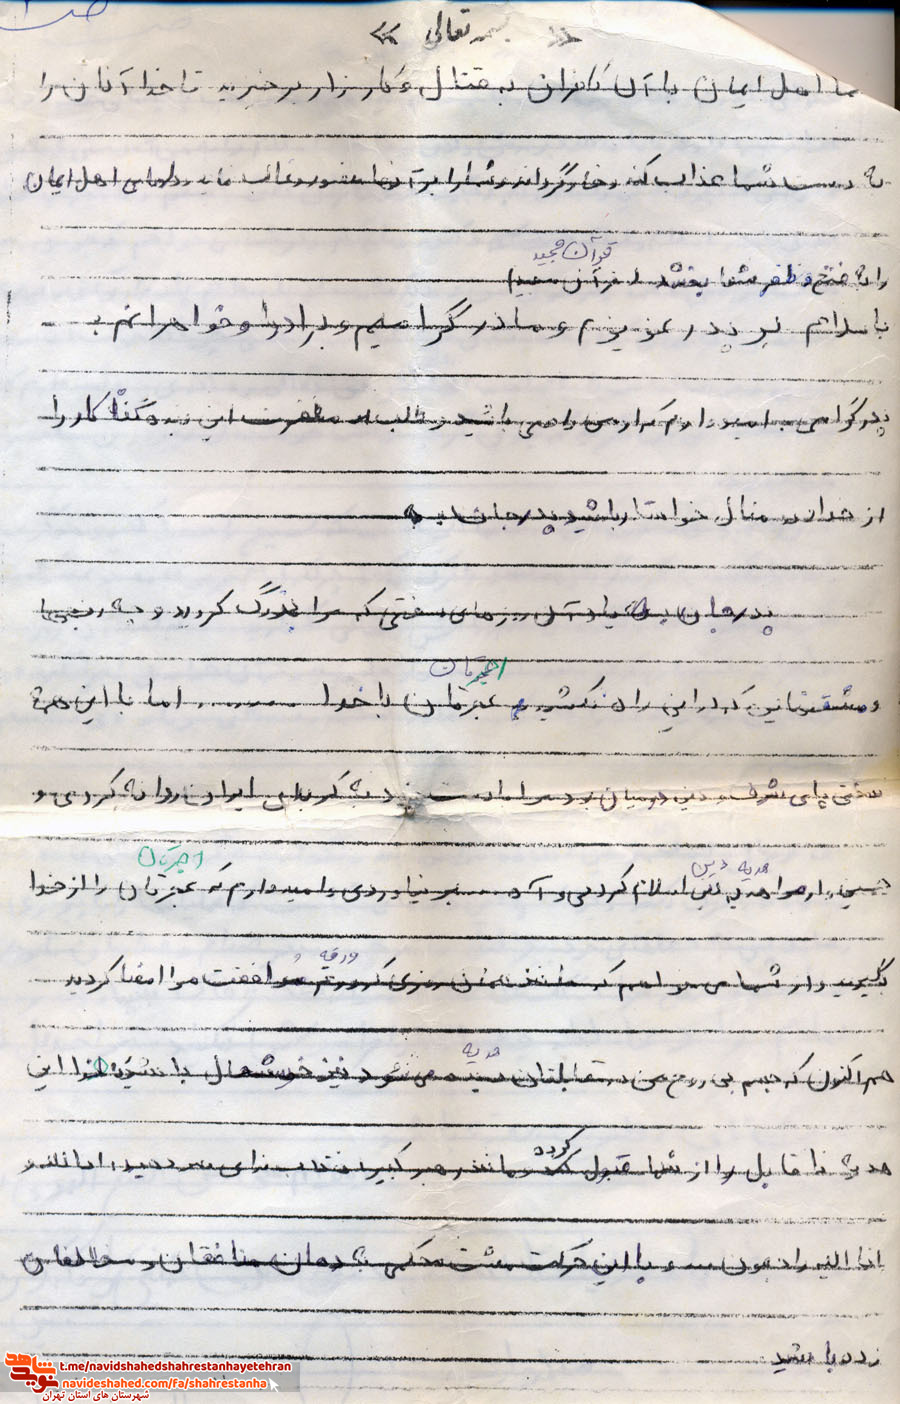 « بسمه تعالی »
شما اهل ایمان با آن کافران به قتال و کار زار برخیزید تا خدا آنان را
به دست شما عذاب کند و خوار گرداند و شما را بر آنها منصور و غالب نماید و دلهای اهل ایمان
قرآن مجید
را به فتح و ظفر شفا بخشد (قرآن مجید)
با سلام بر پدر عزیزم و مادر گرامیم و برادرا و خواهرانم
پدر گرامی امیدوارم که از من راضی باشید و طلب مغفرت این بنده گناکار را
از خداوند منال خواستار باشید پدر جان
پدر جان به یاد آن روزهای سختی که مرا بزرگ کردید و چه رنجها
اجرتان
و مشقتهایی که در این راه نکشیدید عجرتان با خدا ....... اما با این همه
سختی پای شرف و دین در میان بود مرا به کربلای ایران روانه کردی و
هدیه دین اجرتان
اسلام کردی و آه ... بر نیاوردی و امیدوارم که عجرتان را از خدا
ورقه
بگیرید و از شما می خواهم که مانند همان روزی که موافقت مرا امضا کردید
هدیه
هم اکنون که جسم بی روح من در مقابلتان می شود نیز خوشحال باشید که خدا این
کرده
هدیه نا قابل را از شما قبول و مانند رهبر کبیر انقلاب ندای سر دهید انا لله و
انا الیه راجعون و با این حرکت مشت محکمی به دهان منافقان و مخالفان
زده باشید
t.me/navidshahedshahrestanhayetehran
navideshahed.com/fa/shahrestanha
نوید شاهد
شهرستان های استان تهران